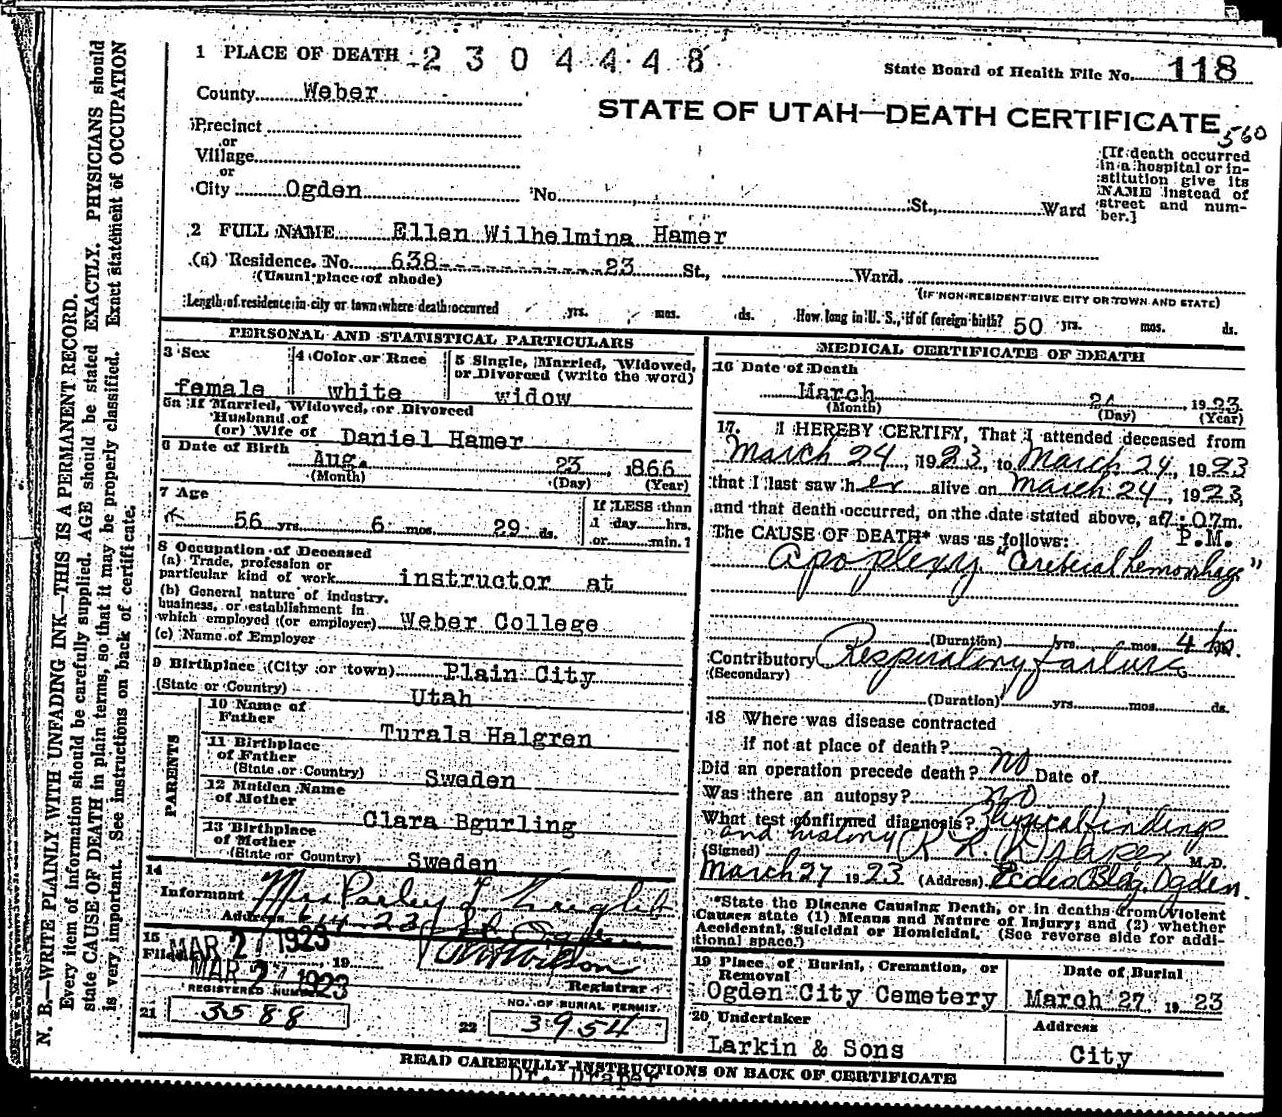 1 PLACE OF DEATH 2304448
State Board of Health File No. 118
County Weber
STATE OF UTAH—DEATH CERTIFICATE
560
Precinct
or
Village
or
City Ogden No. St., Ward
[If death occurred
in a hospital or in-
stitution give its
NAME instead of
street and num-
ber.]
2 FULL NAME Ellen Wilhelmina Hamer
(a) Residence. No. 638 23 St., Ward.
(Usual place of abode)
(IF NON-RESIDENT GIVE CITY OR TOWN AND STATE)
Length of residence in city or town where death occurred yrs. mos. ds. How long in U. S., if of foreign birth? 50 yrs. mos. ds.
PERSONAL AND STATISTICAL PARTICULARS
3 Sex
female
4 Color or Race
white
5 Single, Married, Widowed,
or Divorced (write the word)
widow
5a If Married, Widowed, or Divorced
Husband of
(or) Wife of Daniel Hamer
6 Date of Birth
Aug. 23, 1866
(Month) (Day) (Year)
7 Age
56 yrs. 6 mos. 29 ds.
If LESS than
1 day hrs.
or min.?
8 Occupation of Deceased
(a) Trade, profession or
particular kind of work instructor at
(b) General nature of industry,
business, or establishment in
which employed (or employer) Weber College
(c) Name of Employer
9 Birthplace (City or town) Plain City
(State or Country) Utah
PARENTS
10 Name of
Father Turals Halgren
11 Birthplace
of Father
(State or Country) Sweden
12 Maiden Name
of Mother Clara Bgurling
13 Birthplace
of Mother
(State or Country) Sweden
14
Informant Mrs Parley T Wright
Address 614-23 St Ogden
15
Filed MAR 27 1923, 19
MAR 27 1923
Registrar
REGISTERED NUMBER
21 3588
NO. OF BURIAL PERMIT
22 3954
MEDICAL CERTIFICATE OF DEATH
16 Date of Death
March 24, 1923
(Month) (Day) (Year)
17. I HEREBY CERTIFY, That I attended deceased from
March 24, 1923, to March 24, 1923
that I last saw her alive on March 24, 1923,
and that death occurred, on the date stated above, at 7:07 m.
P.M.
The CAUSE OF DEATH* was as follows:
Apoplexy "Cerebral hemorrhage"
(Duration) yrs. mos. 4 hr.
Contributory Respiratory failure
(Secondary)
(Duration) yrs. mos. ds.
18 Where was disease contracted
if not at place of death?
Did an operation precede death? no Date of
Was there an autopsy? no
What test confirmed diagnosis? Physical findings
and history
(Signed) R R Draper M.D.
March 27 1923 (Address) Eccles Bldg. Ogden
*State the Disease Causing Death, or in deaths from Violent
Causes state (1) Means and Nature of Injury; and (2) whether
Accidental, Suicidal or Homicidal. (See reverse side for addi-
tional space.)
19 Place of Burial, Cremation, or
Removal
Ogden City Cemetery
Date of Burial
March 27, 1923
20 Undertaker
Larkin & Sons
Address
City
READ CAREFULLY INSTRUCTIONS ON BACK OF CERTIFICATE
Dr. Draper
N. B.—WRITE PLAINLY WITH UNFADING INK—THIS IS A PERMANENT RECORD.
Every item of information should be carefully supplied. AGE should be stated EXACTLY. PHYSICIANS should
state CAUSE OF DEATH in plain terms, so that it may be properly classified. Exact statement of OCCUPATION
is very important. See instructions on back of certificate.